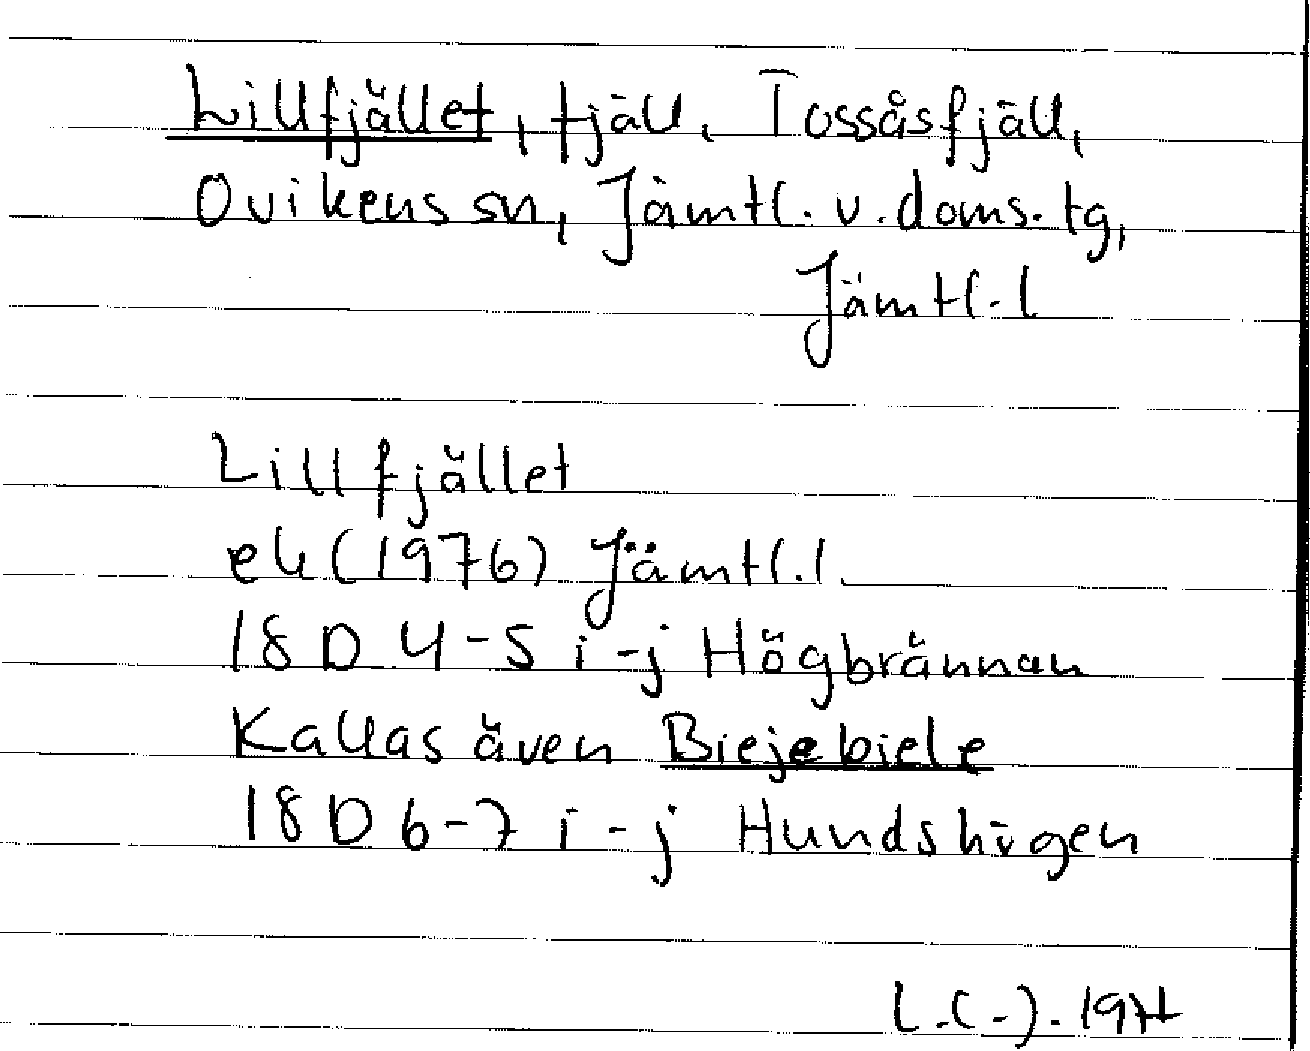 Lillfjället, fjäll, Tossåsfjäll,
Ovikens sn, Jämtl. v. doms. tg,
Jämtl. l
Lillfjället
ek (1976) Jämtl. l.
18 D 4-5 i-j Högbrännan
Kallas även Biejebiele
18 D 6-7 i-j Hundshögen